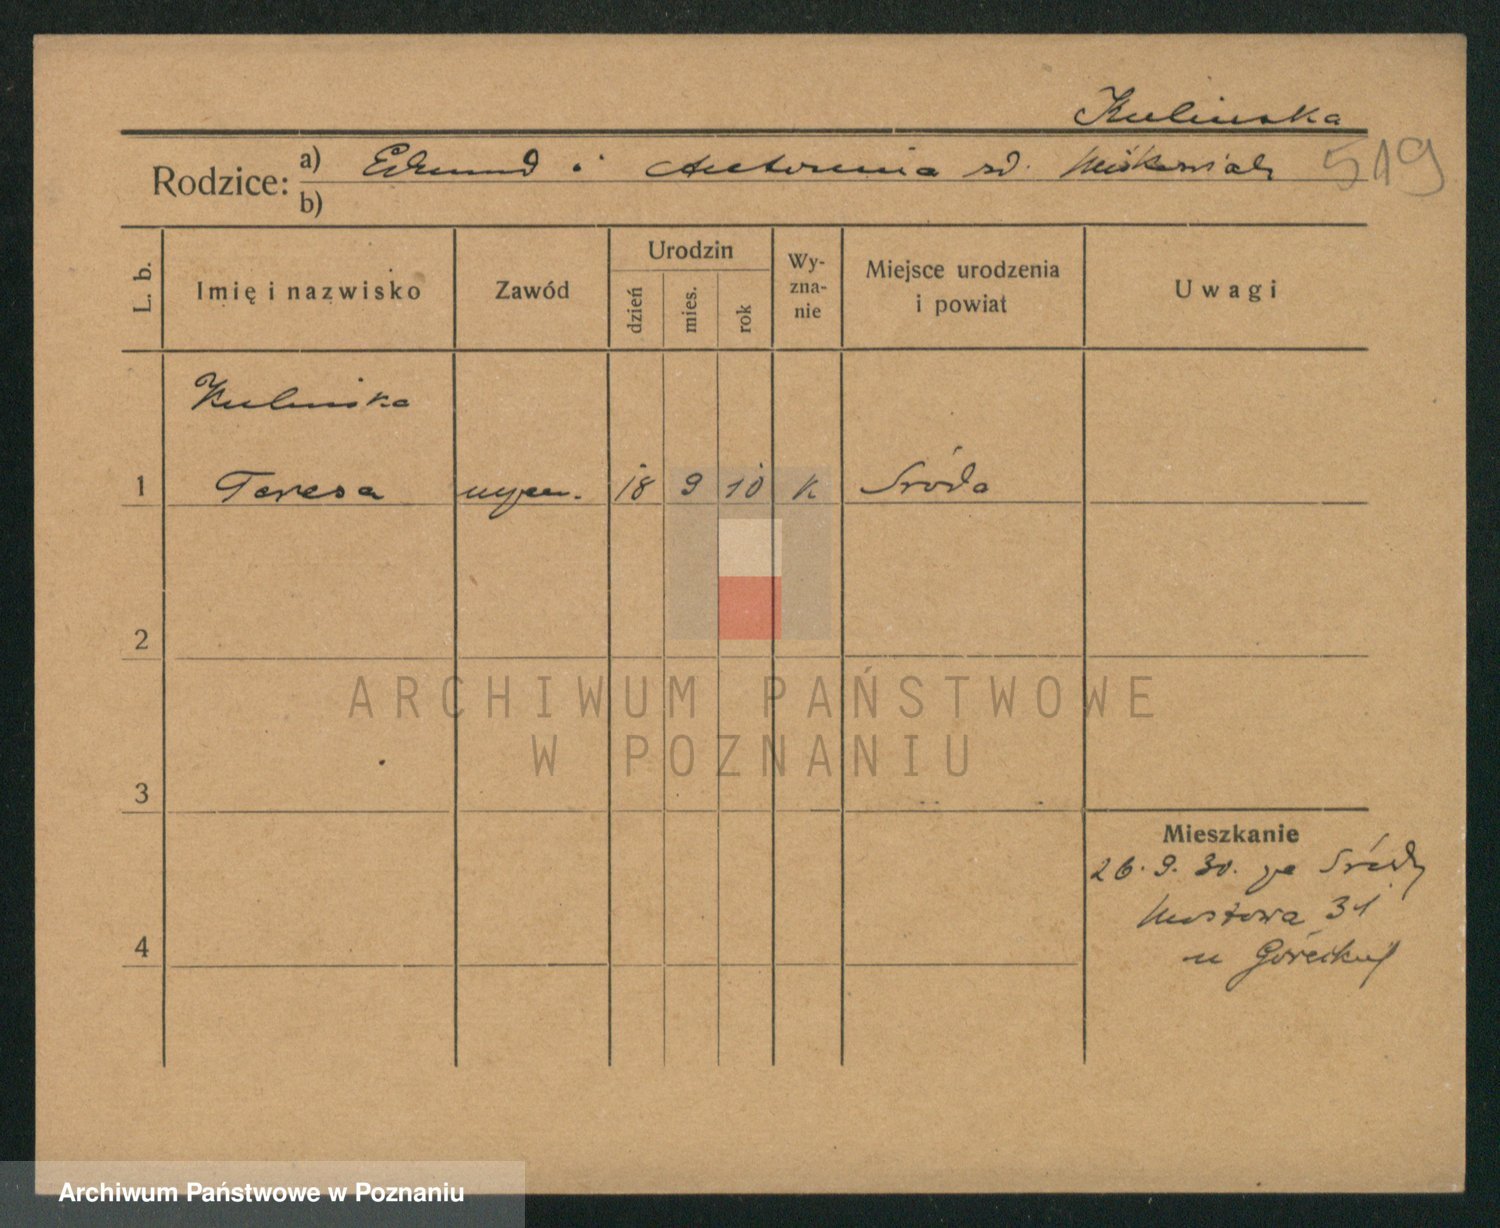 Kulinska
Rodzice: a) Edmund i Antonina
519
b)
L. b.
Imię i nazwisko
Zawód
Urodzin
dzień
mies.
rok
Wy-
zna-
nie
Miejsce urodzenia
i powiat
Uwagi
Kulinska
1 Teresa 18 9 10 K Środa
2
3
4
Mieszkanie
26. 9. 30.
Mostowa 31
u
ARCHIWUM PAŃSTWOWE
W POZNANIU
Archiwum Państwowe w Poznaniu